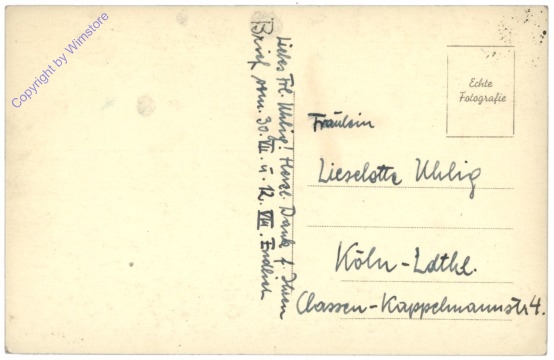 Copyright by Wimstore
Liebes Frl. Uhlig! Herzl. Dank f. Ihren
Brief vom 30. VII. u. 12. VIII. Endlich
Echte
Fotografie
Fräulein
Lieselotte Uhlig
Köln-Ldthl.
Classen-Kappelmannstr 4.